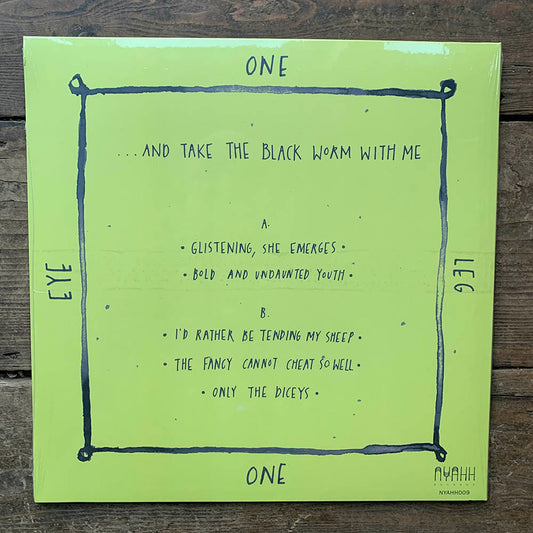 ONE
...AND TAKE THE BLACK WORM WITH ME
A.
• GLISTENING, SHE EMERGES •
• BOLD AND UNDAUNTED YOUTH •
EYE
LEG
B.
• I'D RATHER BE TENDING MY SHEEP •
• THE FANCY CANNOT CHEAT SO WELL •
• ONLY THE DICEYS •
ONE
NYAHH
RECORDS
NYAHH009